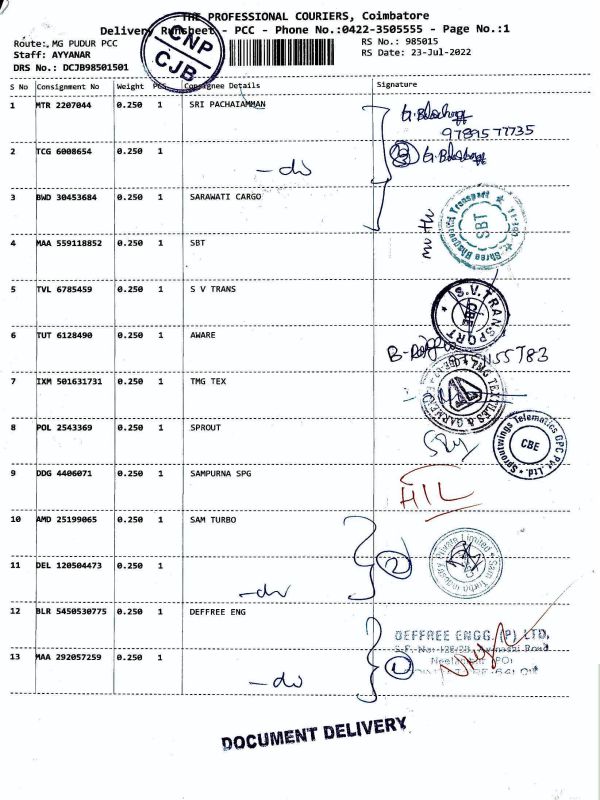 THE PROFESSIONAL COURIERS, Coimbatore
Delivery Runsheet - PCC - Phone No.:0422-3505555 - Page No.:1
Route: MG PUDUR PCC
RS No.: 985015
Staff: AYYANAR
RS Date: 23-Jul-2022
DRS No.: DCJB98501501
CNP
CJB
S No Consignment No Weight PCS Consignee Details Signature
1 MTR 2207044 0.250 1 SRI PACHAIAMMAN
9789577735
2 TCG 6008654 0.250 1 -do
3 BWD 30453684 0.250 1 SARAWATI CARGO
4 MAA 559118852 0.250 1 SBT
SBT
5 TVL 6785459 0.250 1 S V TRANS
S.V.TRANSPORT
CBE
6 TUT 6128490 0.250 1 AWARE
7 IXM 501631731 0.250 1 TMG TEX
TMG TEXTILES & GARMENTS
8 POL 2543369 0.250 1 SPROUT
Sproutwings Telematics OPC Pvt. Ltd.
CBE
9 DDG 4406071 0.250 1 SAMPURNA SPG
HIL
10 AMD 25199065 0.250 1 SAM TURBO
2
Sam Turbo Industry Private Limited
11 DEL 120504473 0.250 1 -do
12 BLR 5450530775 0.250 1 DEFFREE ENG
DEFFREE ENGG. (P) LTD.
1
13 MAA 292057259 0.250 1 -do
DOCUMENT DELIVERY